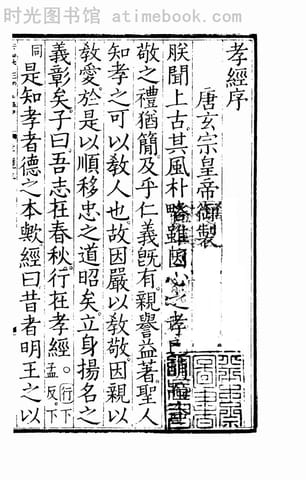 时光图书馆 www.mytimelibrary.com
孝經序
唐玄宗皇帝御製
朕聞上古其風朴略雖因心之孝已萌而資
敬之禮猶簡及乎仁義旣有親譽益著聖人
知孝之可以敎人也故因嚴以敎敬因親以
敎愛於是以順移忠之道昭矣立身揚名之
義彰矣子曰吾志在春秋行在孝經 行下孟反下
同 是知孝者德之本歟經曰昔者明王之以